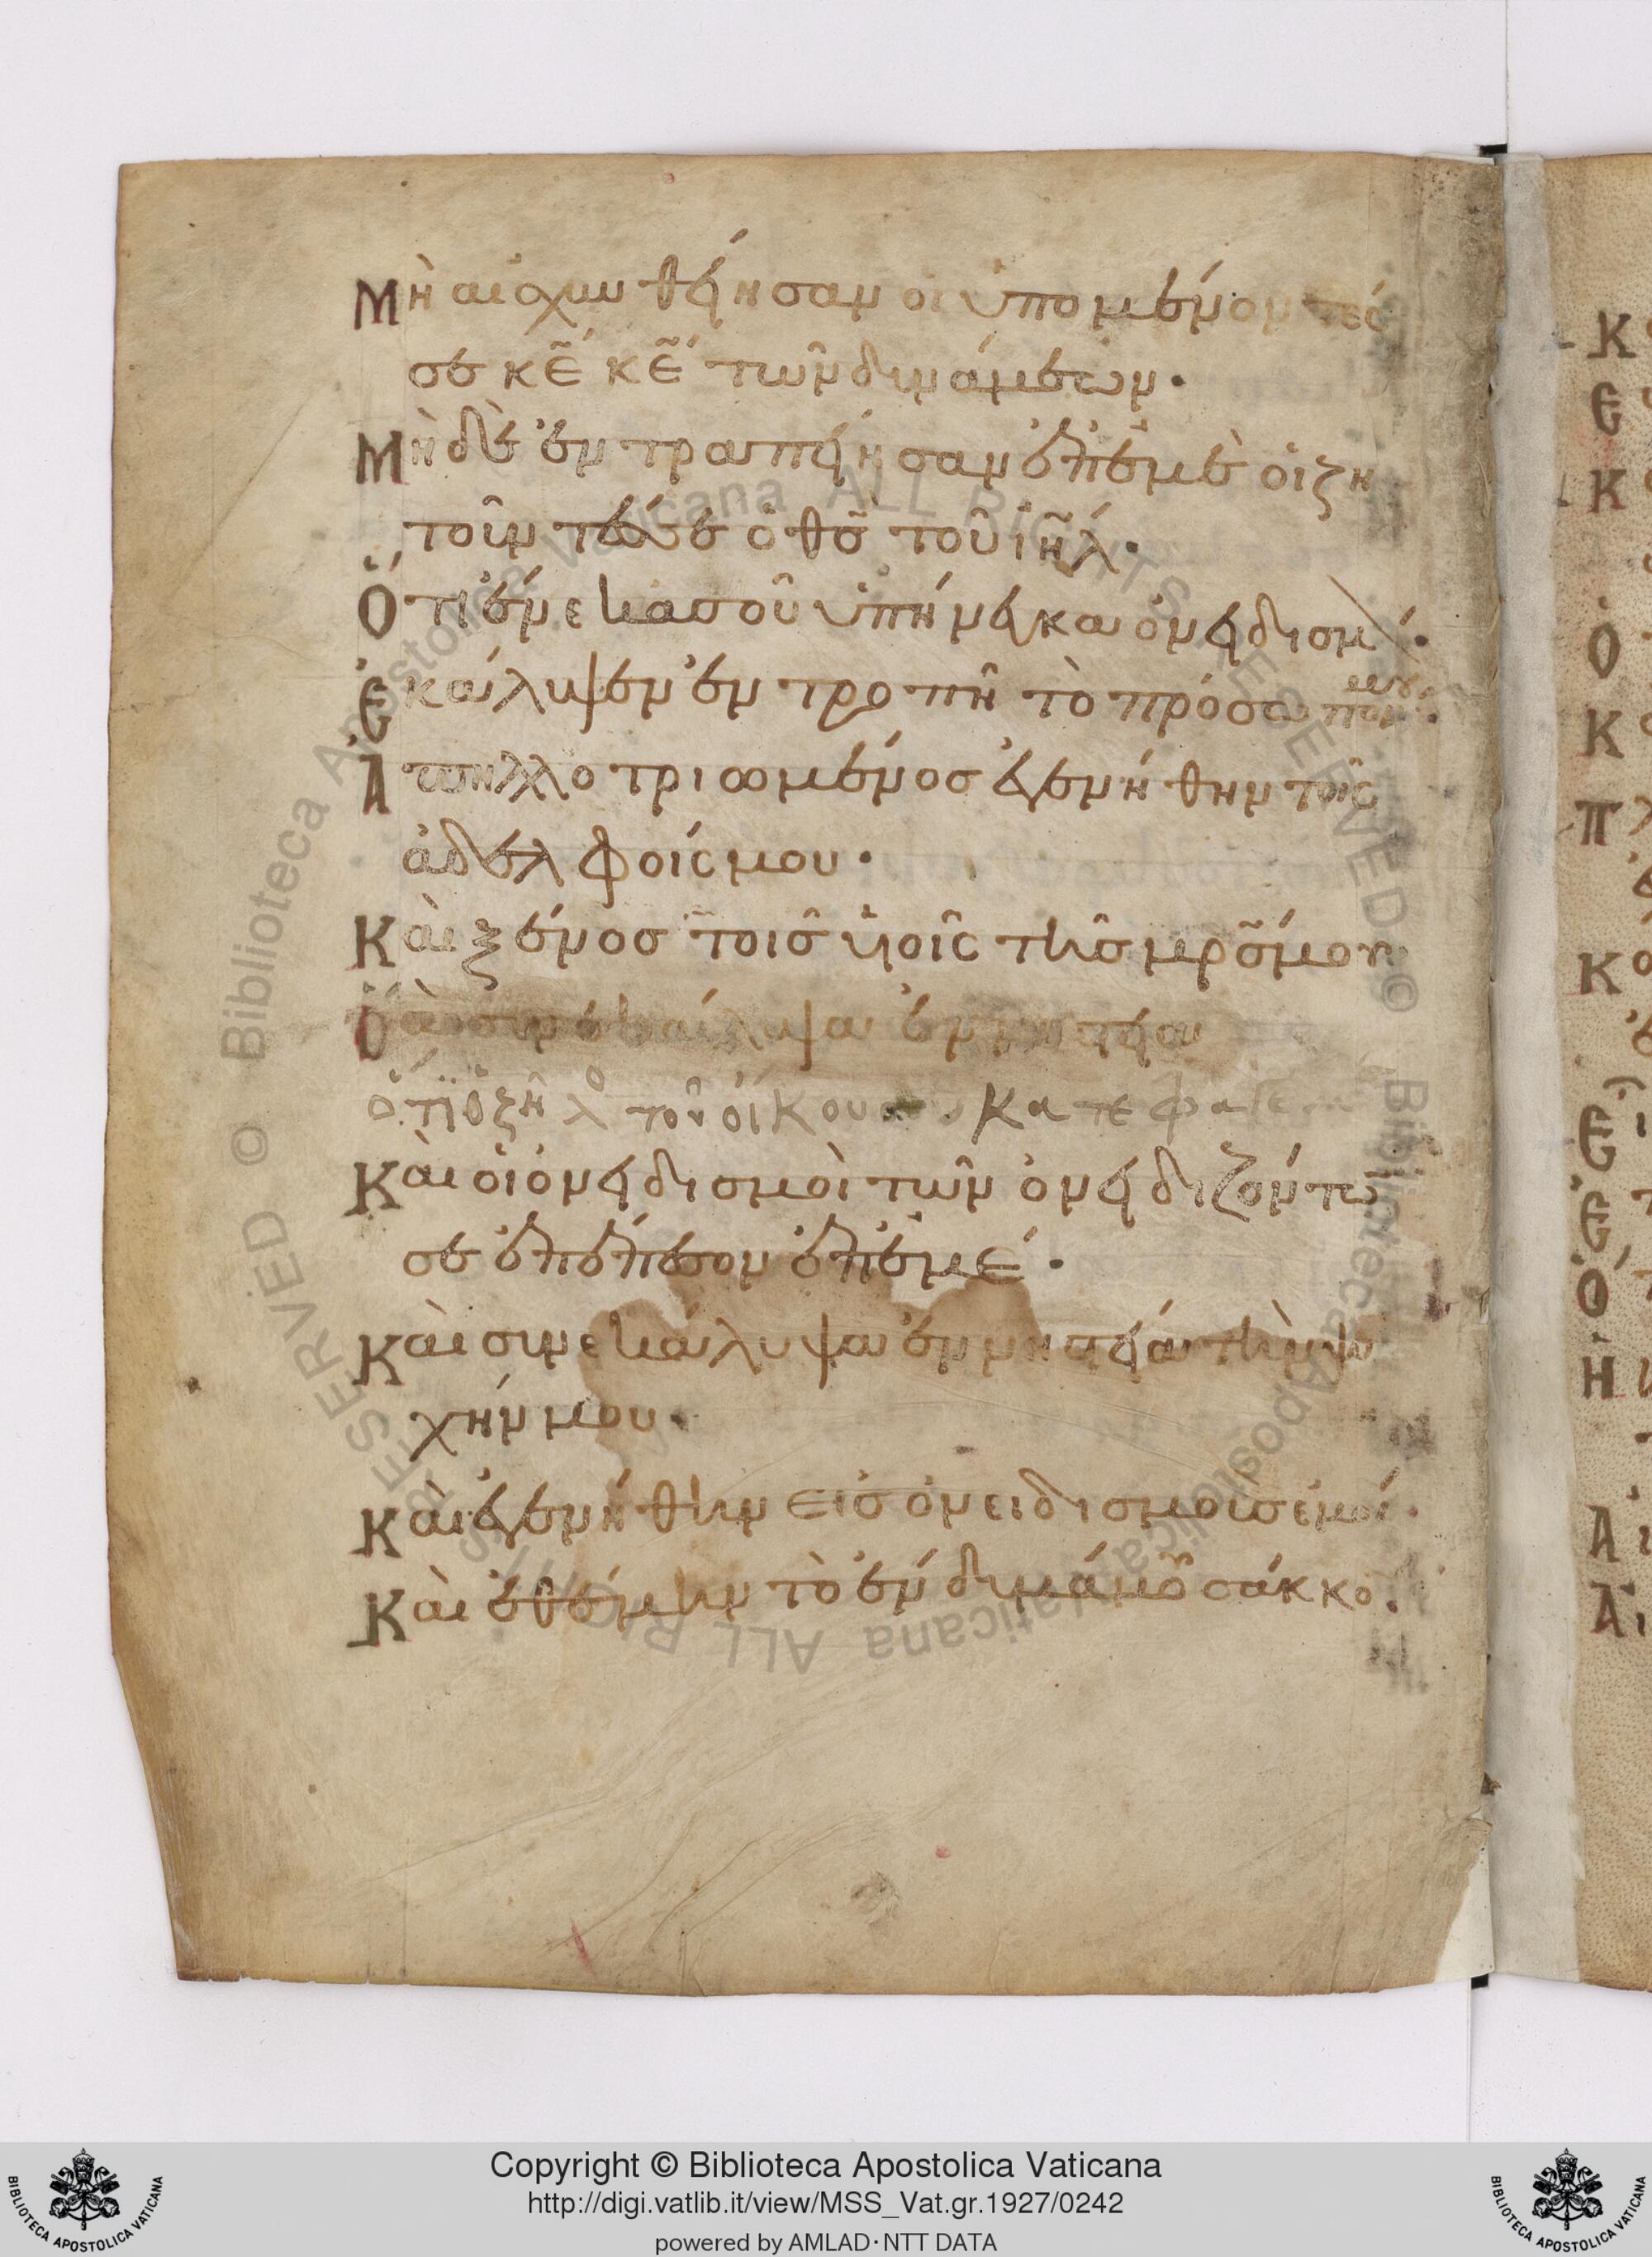 Μὴ αἰσχυνθείησαν οἱ ὑπομένοντές
σε κ̅ε̅ κ̅ε̅ τῶν δυνάμεων·
Μὴ δὲ ἐντραπείησαν ἐπ ἐμὲ οἱ ζη
τοῦντές σε ὁ θ̅ς̅ τοῦ ι̅η̅λ̅·
Ὅτι ἕνεκα σοῦ ὑπήνεγκα ὀνειδισμ́·
Ἐκάλυψεν ἐντροπὴ τὸ πρόσωπον μου·
Ἀπηλλοτριωμένος ἐγενήθην τοῖς
ἀδελφοίς μου·
Καὶ ξένος τοῖς υἱοῖς τῆς μ̅ρ̅ς̅ μου
ὅτι ὁ ζῆλος τοῦ οἴκου κατεφα
Καὶ οἱ ὀνειδισμοὶ τῶν ὀνειδιζόντω
σε ἐπέπεσον ἐπ ἐμέ·
Καὶ συνεκάλυψα ἐν νηστείᾳ τὴν ψυ
χήν μου·
Καὶ ἐγενήθην εἰς ὀνειδισμοὺς ἐμοί·
Καὶ ἐθέμην τὸ ἔνδυμά μου σάκκο·
Κ
Ε
Κ
Ὁ
Κ
Π
Κ
Ε
Ἐ
Ὁ
Ἢ
Α
Α
© Biblioteca Apostolica Vaticana ALL RIGHTS RESERVED © Biblioteca Apostolica Vaticana ALL RIGHTS RESERVED
Copyright © Biblioteca Apostolica Vaticana
http://digi.vatlib.it/view/MSS_Vat.gr.1927/0242
powered by AMLAD·NTT DATA
BIBLIOTECA APOSTOLICA VATICANA
BIBLIOTECA APOSTOLICA VATICANA